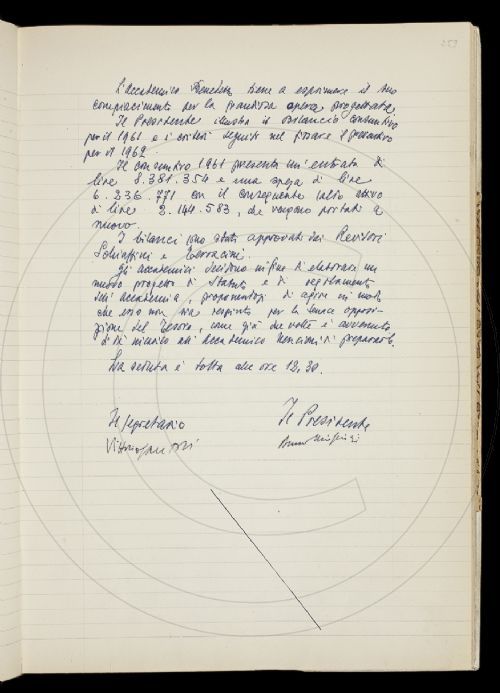 253
L'Accademico Benedetti tiene a esprimere il suo
compiacimento per la grandiosa opera progettata.
Il Presidente illustra il bilancio consuntivo
per il 1961 e i criteri seguiti nel fissare il preventivo
per il 1962.
Il consuntivo 1961 presenta un'entrata di
lire 8.381.354 e una spesa di lire
6.236.771 con il conseguente saldo attivo
di lire 2.144.583, che vengono portati a
nuovo.
I bilanci sono stati approvati dai Revisori
Schiaffini e Terracini.
Gli accademici decidono infine di elaborare un
nuovo progetto di Statuto e di regolamento
dell'accademia, proponendosi di agire in modo
che esso non sia respinto per la
del Tesoro, come già due volte è avvenuto.
Si dà incarico all'Accademico Nencioni di prepararlo.
La seduta è tolta alle ore 12,30.
Il Segretario
Il Presidente